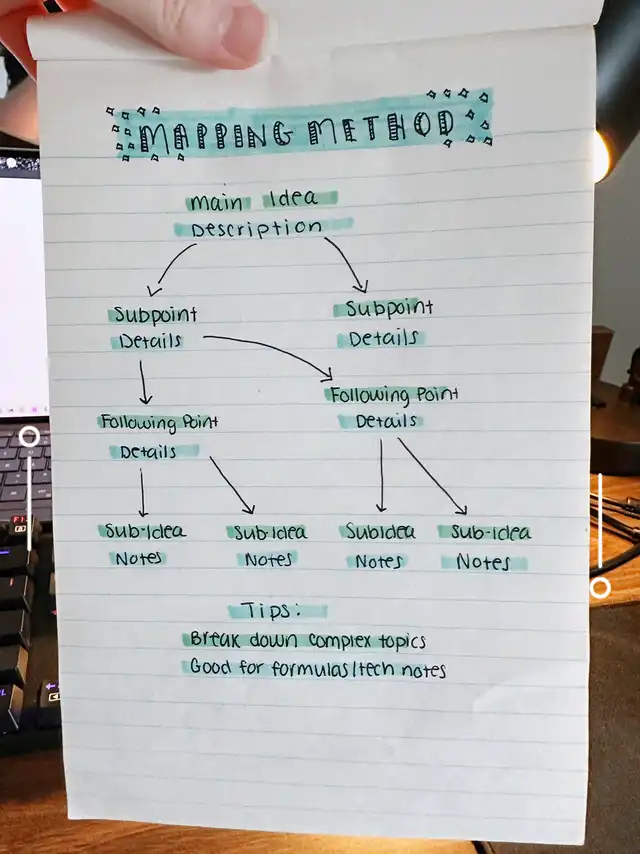 MAPPING METHOD
Main Idea
Description
Subpoint
Details
Subpoint
Details
Following Point
Details
Following Point
Details
Sub-Idea
Notes
Sub-Idea
Notes
SubIdea
Notes
Sub-idea
Notes
Tips:
Break down complex topics
Good for formulas/tech notes